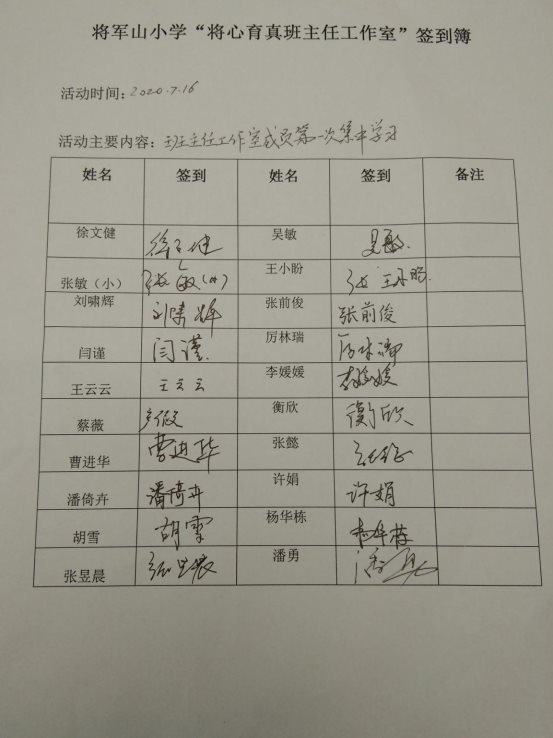 将军山小学“将心育真班主任工作室”签到簿
活动时间：2020.7.16
活动主要内容：班主任工作室成员第一次集中学习
姓名 签到 姓名 签到 备注
徐文健 徐文健 吴敏 吴敏
张敏（小） 张敏（小） 王小盼 王小盼
刘啸辉 刘啸辉 张前俊 张前俊
闫谨 闫谨 厉林瑞 厉林瑞
王云云 王云云 李媛媛 李媛媛
蔡薇 衡欣 衡欣
曹进华 曹进华 张懿
潘倚卉 潘倚卉 许娟 许娟
胡雪 胡雪 杨华栋 杨华栋
张昱晨 张昱晨 潘勇 潘勇